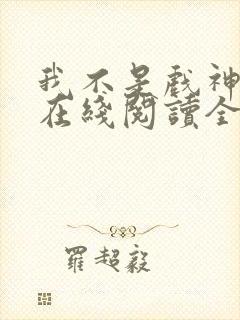 我不是戲神
在綫閱讀全
羅超毅